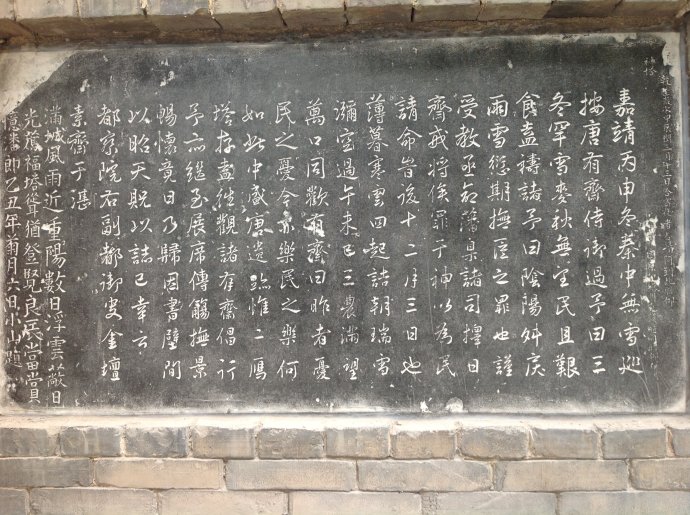 嘉靖丙申冬秦中無雪巡
按唐有齋侍御過予曰三
冬罕雪麥秋無望民且艱
食盍禱諸予曰陰陽舛戾
雨雪愆期撫臣之罪也謹
受教亟命藩臬諸司擇日
齋戒將俟罪于神以為民
請命旹後十二月三日也
薄暮寒雲四起詰朝瑞雪
瀰空過午未已三農滿望
萬口同歡有齋曰昨者憂
民之憂今亦樂民之樂何
如此中咸唐遺跡惟二鴈
塔存盍往觀諸有齋倡行
予亦繼至展席傳觴撫景
暢懷竟日乃歸因書壁間
以昭天貺以誌已幸云
都察院右副都御史金壇
素齋于湛
滿城風雨近重陽數日浮雲蔽日
光薦福塔聳猶登覽良辰當賞
乙丑年 月六日小山題